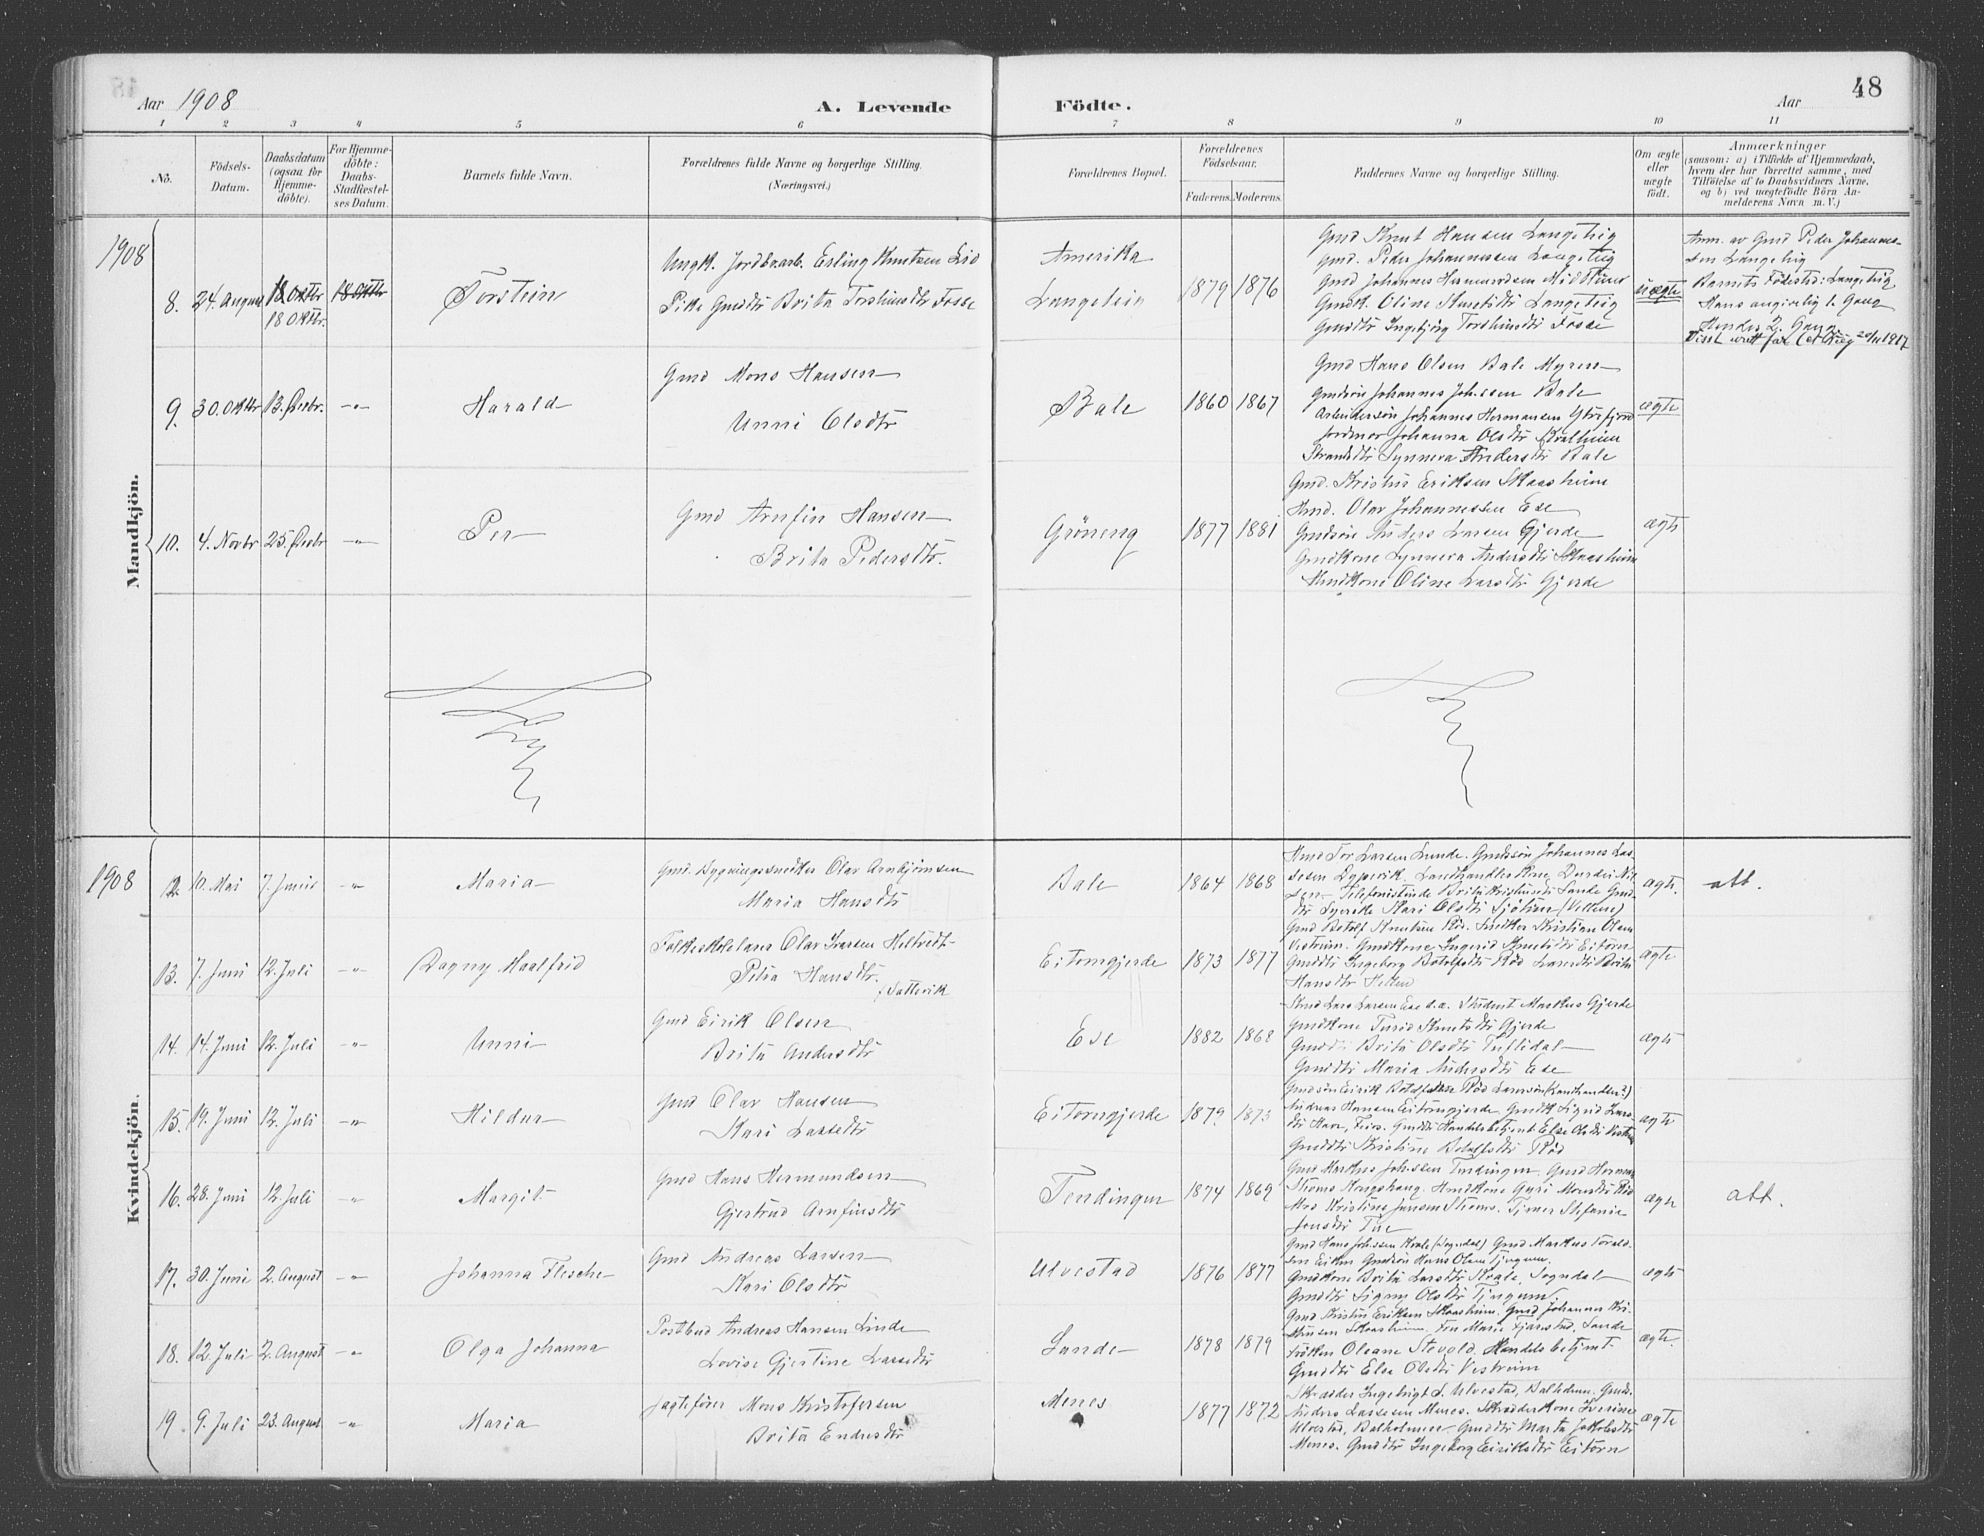 Aar 1908
A. Levende
Födte.
Aar
48
1
2
3
4
5
6
7
8
9
10
11
No.
Födsels-
Datum.
Daabsdatum
(ogsaa for
Hjemme-
döbte).
For Hjemme-
döbte:
Daabs-
Stadfæstel-
ses Datum.
Barnets fulde Navn.
Forældrenes fulde Navne og borgerlige Stilling.
(Næringsvei.)
Forældrenes Bopæl.
Forældrenes
Födselsaar.
Faderens.
Moderens.
Faddernes Navne og borgerlige Stilling.
Om ægte
eller
uægte
födt.
Anmærkninger
(saasom: a) i Tilfælde af Hjemmedaab,
hvem der har forrettet samme, med
Tilföielse af to Daabsvidners Navne,
og b) ved uægtefödte Börn An-
melderens Navn m. V.)
Mandkjön.
1908
8. 24. August 18 Oktbr 18 Oktbr
18 Oktbr.
Torstein
Ungk. Jordbrarb. Erling Knutsen Lid
Pike Gmdsdtr Brita Torsteinsdtr Fosse
Amerika
Langeteig
1879 1876
Gmd Knut Hansen Langeteig
Gmd. Peder Johannessen Langeteig
Gmd Johannes Hermundsen
Gmdk. Oline Knutsdtr Langeteig
Gmddtr Ingebjörg Torsteinsdtr Fosse
uægte
Anm. av Gmd Peder Johannes-
sen Langeteig
Barnets Födested: Langeteig
Hans angivelig 1. Gang
Hendes 2. Gang
9. 30. Oktbr 13. Decbr. -"-
Harald
Gmd Mons Hansen
Unni Olsdtr
Bale
1860 1867
Gmd Hans Olsen Bale Myren
Gmdsön Johannes Johssen Bale
Arbeidersön Johannes Hermansen
Jordmor Johanna Olsdtr Kvalheim
Strandsdtr Synneva Andersdtr Bale
ægte
10. 4. Novbr 25. Decbr -"-
Per
Gmd Arnfin Hansen
Brita Pedersdtr.
Gröneng
1877 1881
Gmd. Kristen Eriksen Skaasheim
Hmd. Olav Johannessen Ese
Gmdsön Anders Larsen Gjerde
Gmdkone Synneva Andersdtr Skaasheim
Hmdkone Oline Larsdtr Gjerde
ægte
Kvindekjön.
1908
12. 10. Mai 7. Juni -"-
Maria
Gmd. Bygningssnedker Olav Arnbjörnsen
Maria Hansdtr
Bale
1864 1868
Hmd Tor Larsen Lunde. Gmdssön Johannes Las-
sesen Dypevik. Landhandlerkone Durdei Nil-
sen Telefonistinde Brita Kristensdtr Sande Gmd-
dtr Kari Olsdtr Sjötun (Vellene)
ægte.
att.
13. 7. Juni 12. Juli -"-
Dagny Maalfrid
Folkeskolelærer Olav Ivarsen Heltvedt
Petra Hansdtr.
(Sattevik
Eitorngjerde
1873 1877
Gmd Botolf Knutsen Röd. Snedker Kristian Olsen
Veström. Gmdkone Ingerid Knutsdtr Eitörn
Gmddtr Ingeborg Botolfsdtr Röd Lærerdtr Brita
Hansdtr
ægte
14. 14. Juni 12. Juli -"-
Unni
Gmd Eirik Olsen
Brita Andersdtr
Ese
1882 1868
Hmd Lars Larsen Ese s.a. Student Markus Gjerde
Gmdkone Turid Knutsdtr Gjerde
Gmddtr Brita Olsdtr Tuftedal
Gmddtr Maria Andersdtr Ese
ægte
15. 19. Juni 12. Juli -"-
Hildur
Gmd Olav Hansen
Kari Lassedtr
Eitorngjerde
1879. 1873
Gmdsön Eirik Botolfsen Röd
Andreas Hansen Eitorngjerde Gmdk Sigrid Lars-
dtr Feios. Gmddtr Handelsbetjent Else Olsdtr
Gmddtr Kristine Botolfsdtr Röd
ægte
16. 28. Juni 12. Juli -"-
Margit
Gmd Hans Hermundsen
Gjertrud Arnfinsdtr
Tendingen
1874 1869
Gmd Markus Johssen Tendingen. Gmd Herman
Hmdkone Guri Monsdtr
Kristine Jensen Stefanie
Jensdtr Tue
ægte
att.
17. 30. Juni 2. August -"-
Johanna Flesche
Gmd Andreas Larsen
Kari Olsdtr
Ulvestad
1876 1877
Gmd Hans Johssen Kvale (Sogndal) Gmd Markus
sen Gmdsön Hans Olsen Tjugum.
Gmdkone Brita Larsdtr Kvale, Sogndal
Gmddtr Signy Olsdtr Tjugum.
ægte
18. 12. Juli 2. August -"-
Olga Johanna
Postbud Andreas Hansen Linde
Lovise Gjertine Lassedtr
Sande
1878 1879
Gmd Kristen Eriksen Skaasheim. Gmd Johannes Kri-
stensen Skaasheim Marie Fjærestad, Sande
Fröken Oleane Stovold. Handelsbetjent
Gmddtr Else Olsdtr Veström
ægte.
19. 9. Juli 23. August -"-
Maria
Jagtefører Mons Kristofersen
Brita Endresdtr
Menes
1877 1872
Skrædder Ingebrigt J. Ulvestad, Balholmen. Gmds.
Anders Lassesen Menes. Skrædderkone Iverine
Ulvestad, Balholmen. Gmddtr Marta Jakobsdtr
Menes. Gmddtr Ingeborg Eiriksdtr Eitörn
ægte